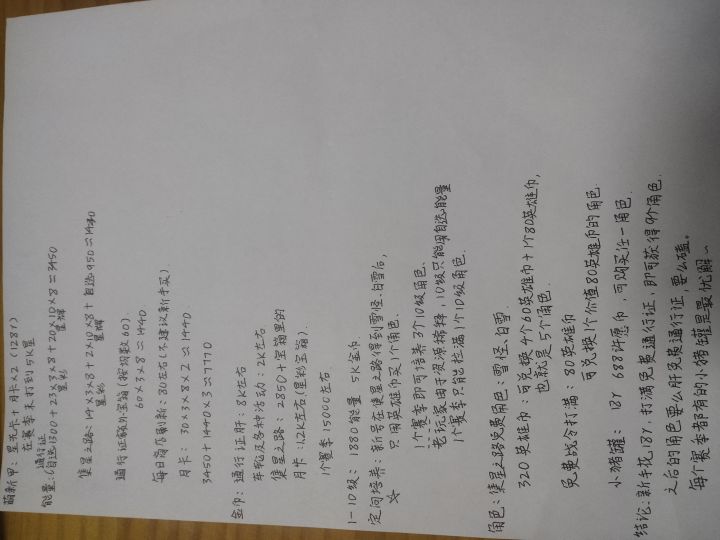 萌新男：星元卡+月卡×2（128Y）
在赛季末打到5K星
通行证
能量：(自选1300+23×3×8+20×10×8≈3450
星彩 星辉
集星之路：14×3×8+2×10×8+自选950≈1440
星彩 星辉
通行证额外宝箱（按期数60）
60×3×8≈1440
每日商店刷新：80左右（不建议新手买）
月卡：30×3×8×2≈1440
3450+1440×3≈7770
金币：通行证肝：8K左右
车轮及各种活动：2K左右
集星之路：2850+宝箱里的
月卡：1.2K左右（星彩宝箱）
1个赛季15000左右
1-10级：1880能量 5K金币
定向培养：新号在集星之路得到雪怪、白雪后，
☆ 只用英雄币买1个角色。
1个赛季即可培养3个10级角色。
老玩家由于资源稀释，10级只能用自选能量
1个赛季只能拉满1个10级角色。
角色：集星之路免费角色：雪怪、白雪
320英雄币：可兑换4个60英雄币+1个80英雄币，
也就是5个角色。
免费战令打满：80英雄币
可兑换1个价值80英雄币的角色。
小猪罐：18Y 688许愿币，可购买任一角色。
结论：新手花18Y，打满免费通行证，即可获得9个角色。
之后的角色要么肝免费通行证，要么磕。
每个赛季都有的小猪罐是最优解~